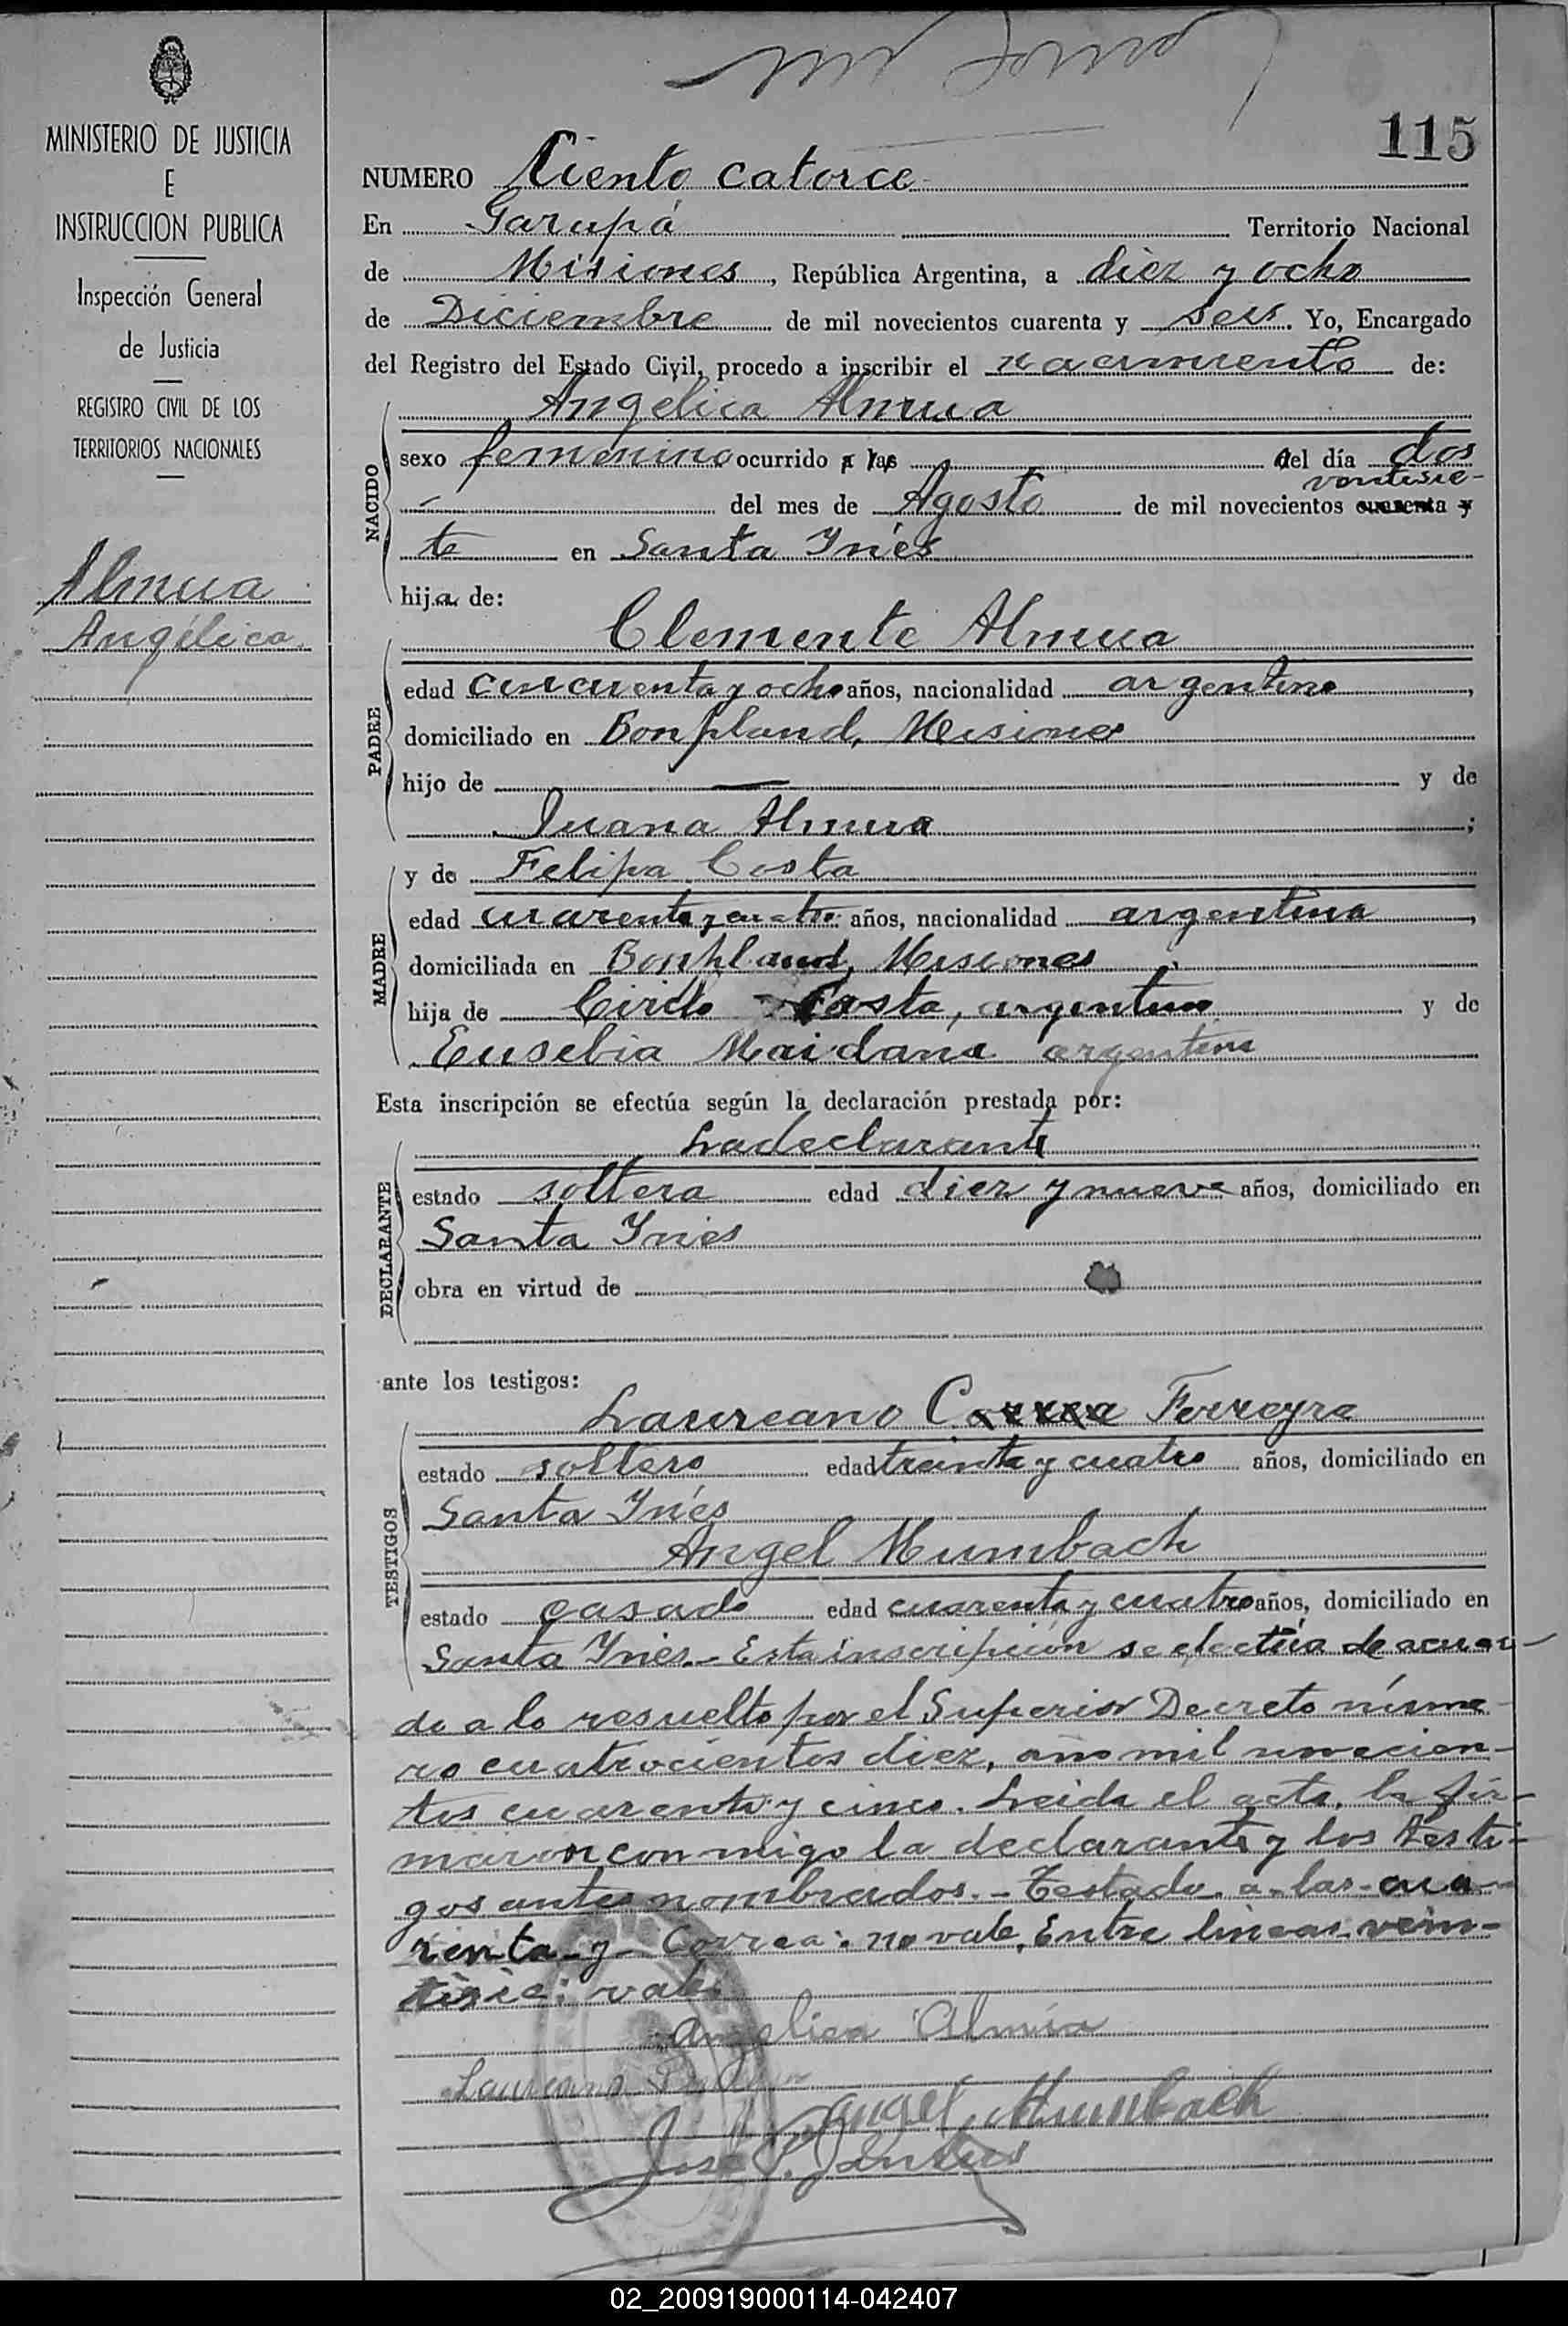 MINISTERIO DE JUSTICIA
E
INSTRUCCION PUBLICA
Inspección General
de Justicia
REGISTRO CIVIL DE LOS
TERRITORIOS NACIONALES
Almua
Angélica
115
NUMERO Ciento catorce
En Garupá Territorio Nacional
de Misiones, República Argentina, a diez y ocho
de Diciembre de mil novecientos cuarenta y seis. Yo, Encargado
del Registro del Estado Civil, procedo a inscribir el nacimiento de:
NACIDO
Angelica Almua
sexo femenino ocurrido a las del día dos
ventisie-
del mes de Agosto de mil novecientos cuarenta y
te en Santa Ynés
hija de:
PADRE
Clemente Almua
edad cincuenta y ocho años, nacionalidad argentino,
domiciliado en Bonpland, Misiones
hijo de — y de
Juana Almua;
MADRE
y de Felipa Costa
edad cuarenta y cuatro años, nacionalidad argentina,
domiciliada en Bonpland, Misiones
hija de Cirilo Costa, argentino y de
Eusebia Maidana argentina
Esta inscripción se efectúa según la declaración prestada por:
DECLARANTE
La declarante
estado soltera edad diez y nueve años, domiciliado en
Santa Ynés
obra en virtud de
ante los testigos:
TESTIGOS
Laureano Correa Ferreyra
estado soltero edad treinta y cuatro años, domiciliado en
Santa Ynés
Angel Mumbach
estado casado edad cuarenta y cuatro años, domiciliado en
Santa Ynés.- Esta inscripción se efectúa de acuer-
do a lo resuelto por el Superior Decreto núme-
ro cuatrocientos diez, año mil novecien-
tos cuarenta y cinco. Leida el acta, la fir-
maron conmigo la declarante y los testi-
gos antes nombrados.- Testado. a-las-cua-
renta-y- Correa: no vale. Entre lineas-vein-
tisie: vale
Angelica Almúa
Laureano
Angel Mumbach
José
02_200919000114-042407